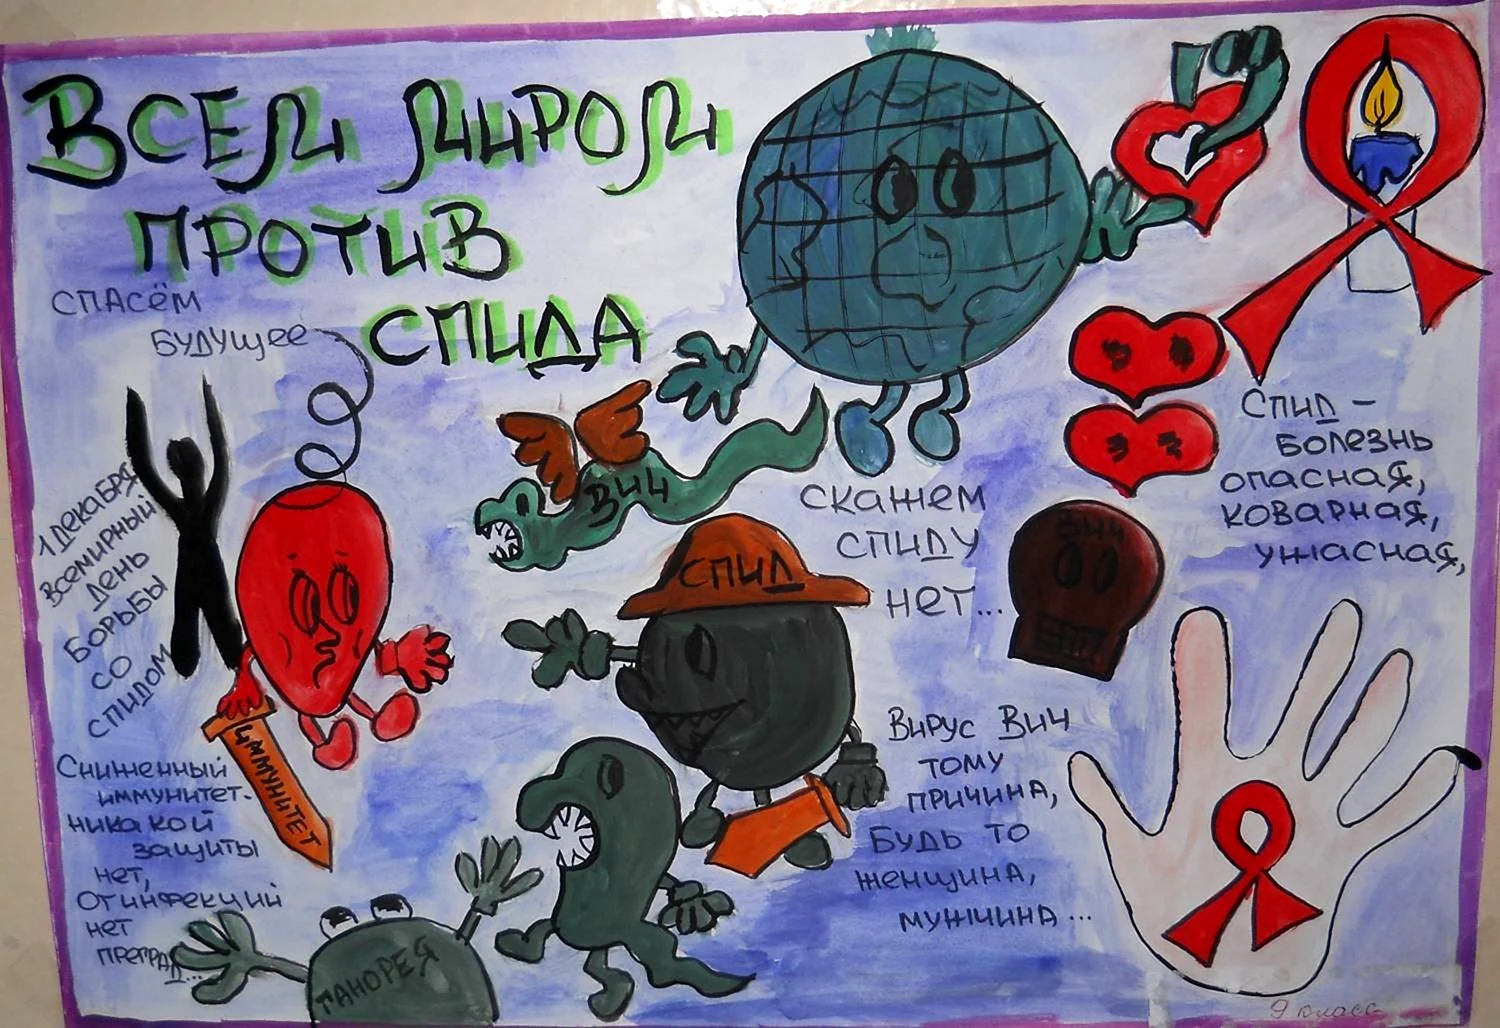 Всем миром
против
СПИДА
СПАСЁМ
БУДУЩЕЕ
1 ДЕКАБРЯ
ВСЕМИРНЫЙ
ДЕНЬ
БОРЬБЫ
СО
СПИДОМ
ВИЧ
СПИД
СКАЖЕМ
СПИДУ
НЕТ...
ВИЧ
СПИД –
БОЛЕЗНЬ
ОПАСНАЯ,
КОВАРНАЯ,
УЖАСНАЯ,
ИММУНИТЕТ
Сниженный
иммунитет-
никакой
защиты
нет,
От инфекций
нет
преград...
ГАНОРЕЯ
Вирус Вич
тому
причина,
Будь то
женщина,
мужчина...
9 класс